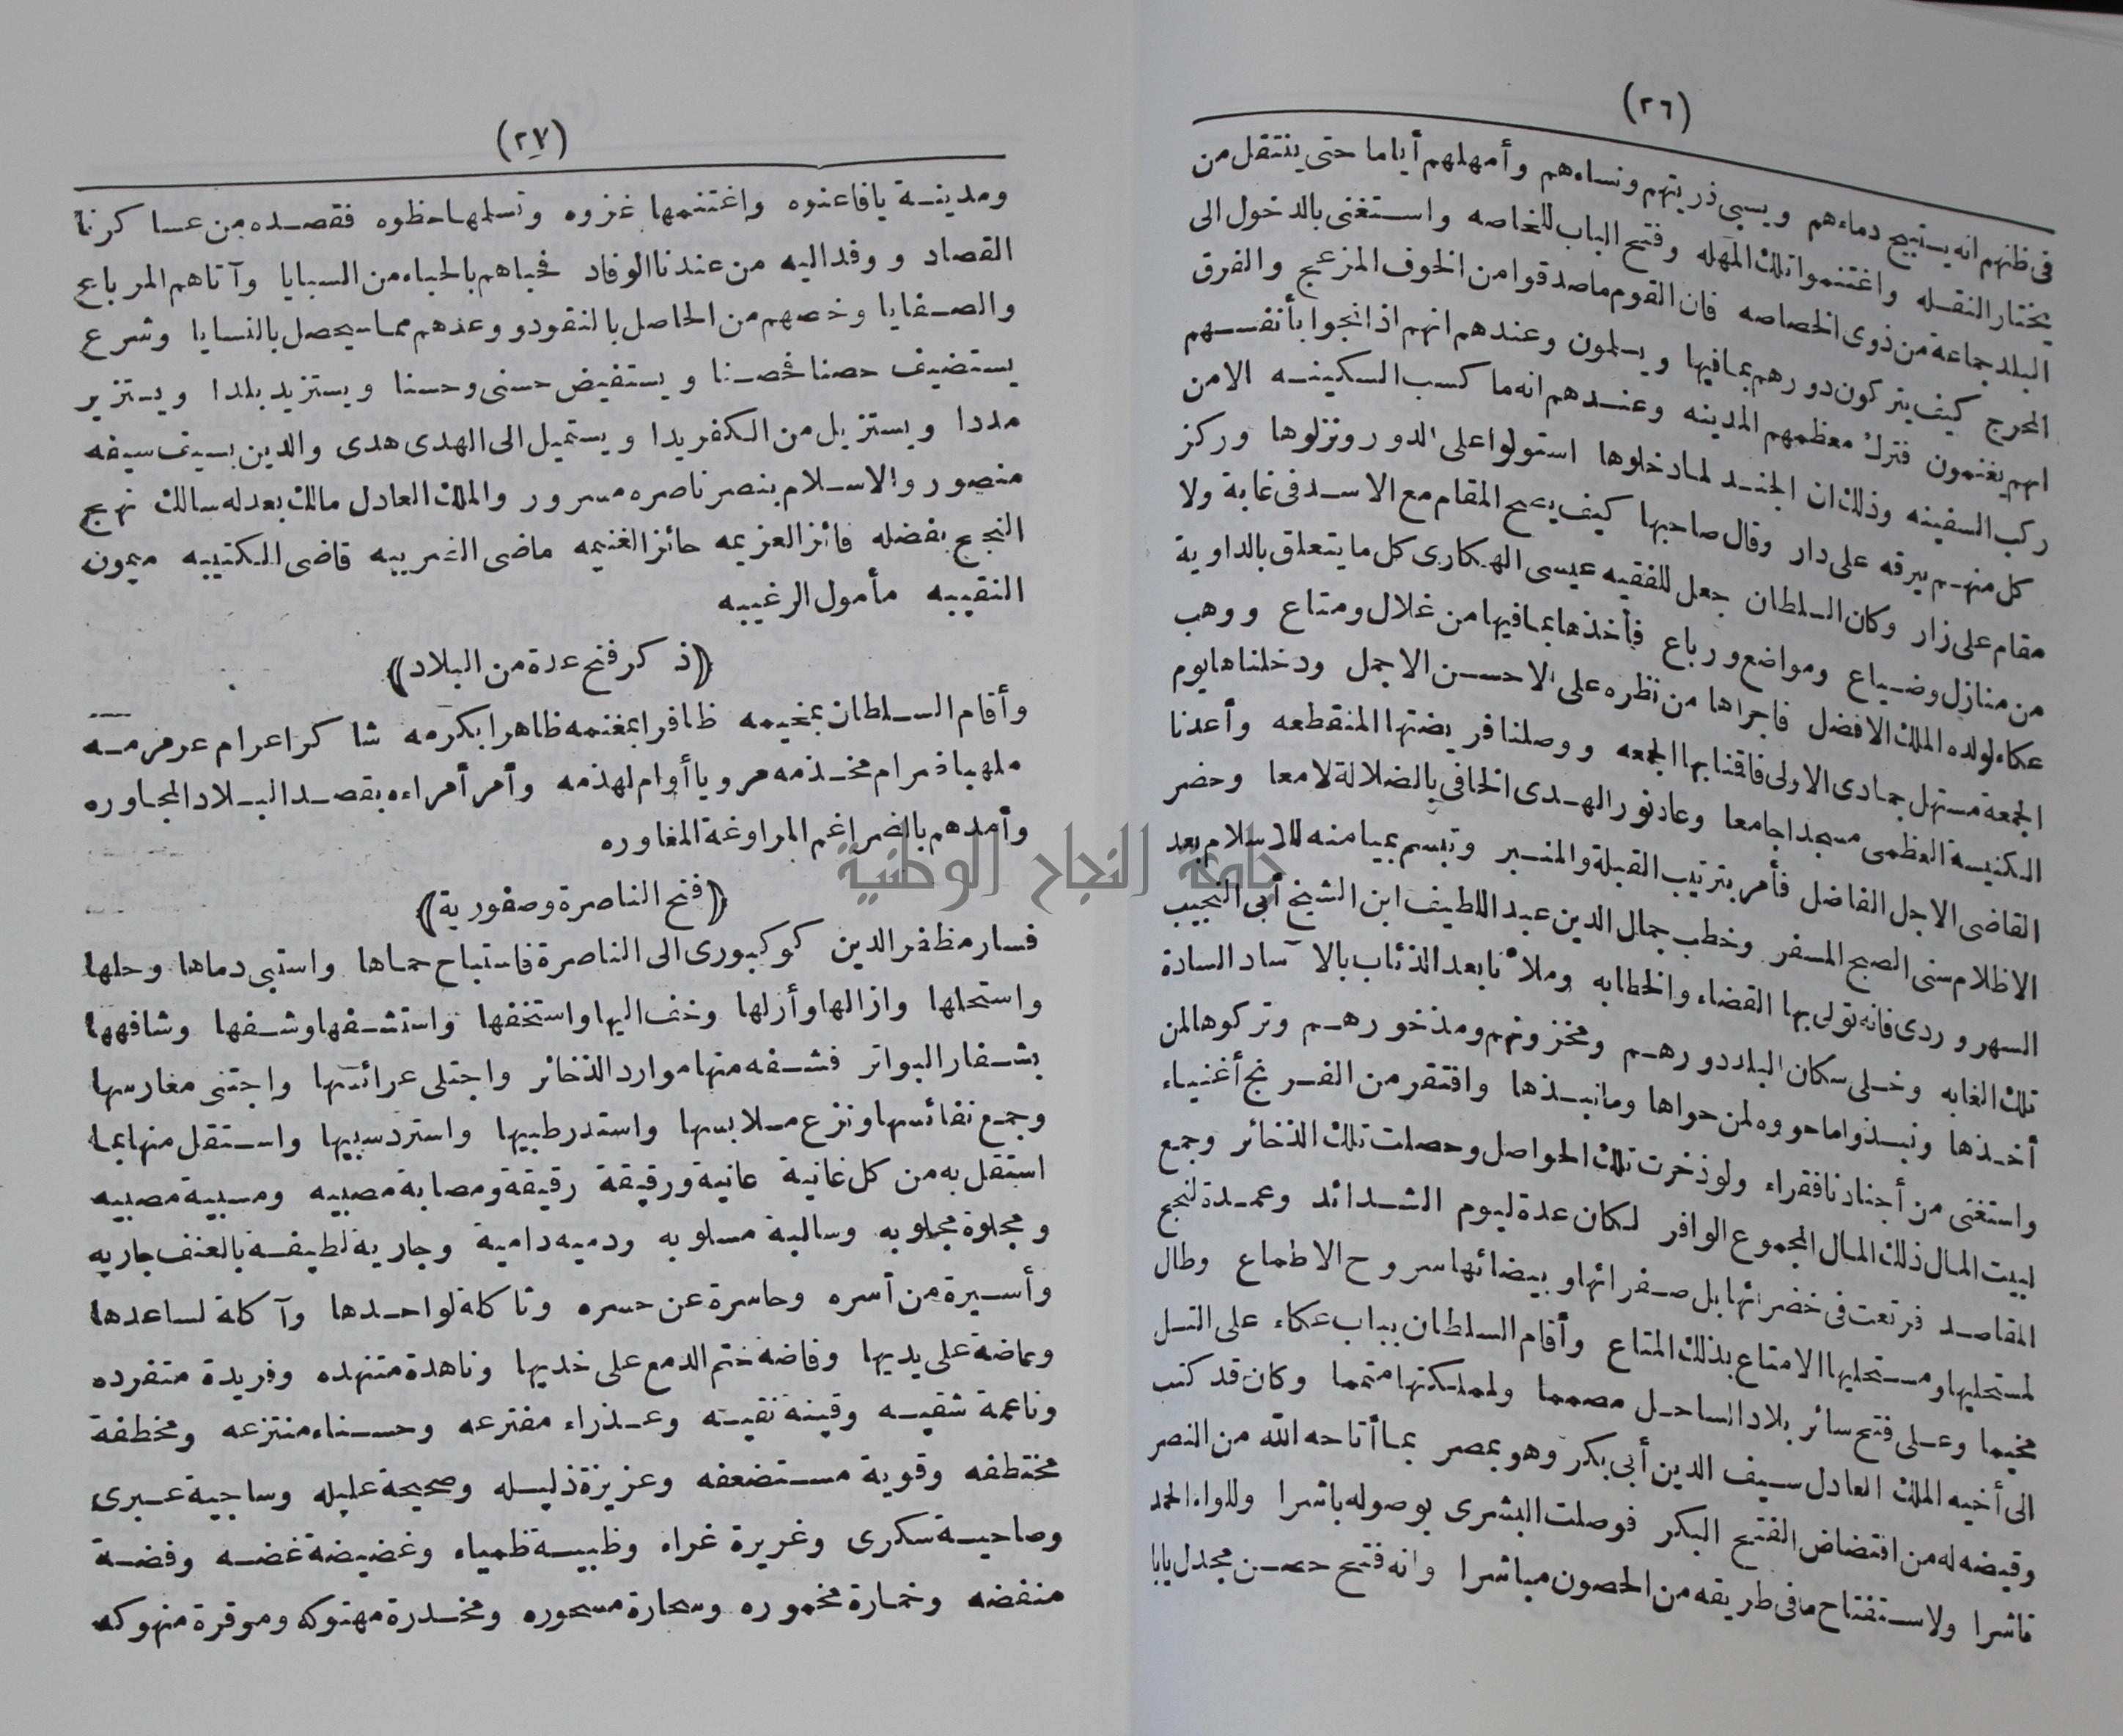 (٢٦)
فى ظنهم انه يستبيح دماءهم ويسبى ذريتهم ونساءهم وأمهلهم أياما حتى ينتقل من
يختار النقله واغتنموا تلك المهله وفتح الباب للخاصه واستغنى بالدخول الى
البلد جماعة من ذوى الخصاصه فان القوم ما صدقوا من الخوف المزعج والفرق
المحرج كيف يتركون دورهم بما فيها ويسلمون وعندهم انهم اذا نجوا بأنفسهم
انهم يغنمون فترك معظمهم المدينه وعندهم انه ما كسب السكينه الا من
ركب السفينه وذلك ان الجند لما دخلوها استولوا على الدور ونزلوها وركز
كل منهم بيرقه على دار وقال صاحبها كيف يصح المقام مع الاسد فى غابة ولا
مقام على زار وكان السلطان جعل للفقيه عيسى الهكارى كل ما يتعلق بالداوية
من منازل وضياع ومواضع ورباع فأخذها بما فيها من غلال ومتاع ووهب
عكاء لولده الملك الافضل فاجراها من نظره على الاحسن الاجمل ودخلناها يوم
الجمعة مستهل جمادى الاولى فاقمنا بها الجمعه ووصلنا فريضتها المنقطعه وأعدنا
الكنيسة العظمى مسجدا جامعا وعاد نور الهدى الخافى بالضلالة لامعا وحضر
القاضى الاجل الفاضل فأمر بترتيب القبلة والمنبر وتبسم بميامنه للاسلام بعد
الاظلام سنى الصبح المسفر وخطب جمال الدين عبد اللطيف ابن الشيخ أبى النجيب
السهروردى فانه تولى بها القضاء والخطابه وملأنا بعد الذئاب بالآساد السادة
تلك الغابه وخلى سكان البلد دورهم ومخزونهم ومذخورهم وتركوها لمن
أخذها ونبذوا ما حووه لمن حواها وما نبذها وافتقر من الفرنج أغنياء
واستغنى من أجنادنا فقراء ولو ذخرت تلك الحواصل وحصلت تلك الذخائر وجمع
لبيت المال ذلك المال المجموع الوافر لكان عدة ليوم الشدائد وعمدة لنجح
المقاصد فرتعت فى خضرائها بل صفرائها وبيضائها سروح الاطماع وطال
لمستحليها ومستحليها الامتاع بذلك المتاع وأقام السلطان بباب عكاء على التل
مخيما وعلى فتح سائر بلاد الساحل مصمما ولمملكتها متمما وكان قد كتب
الى أخيه الملك العادل سيف الدين أبى بكر وهو بمصر بما أتاحه الله من النصر
وقيضه له من افتضاض الفتح البكر فوصلت البشرى بوصوله باشرا وللواء الحمد
ناشرا ولاستفتاح ما فى طريقه من الحصون مباشرا وانه فتح حصن مجدل يابا
(٢٧)
ومدينة يافا عنوه واغتنمها غزوه وتسلمها حظوه فقصده من عساكرنا
القصاد ووفد اليه من عندنا الوفاد فحباهم بالحباء من السبايا وآتاهم المرباع
والصفايا وخصهم من الحاصل بالنقود ووعدهم مما سيحصل بالنسايا وشرع
يستضيف حصنا فحصنا ويستفيض حسنى وحسنا ويستزيد بلدا ويستزير
مددا ويستزيل من الكفر يدا ويستميل الى الهدى هدى والدين بسيف سيفه
منصور والاسلام بنصر ناصره مسرور والملك العادل مالك بعدله سالك نهج
النجح بفضله فائز العزيمه حائز الغنيمه ماضى الضريبه قاضى الكتيبه ميمون
النقيبه مأمول الرغيبه
﴿ذكر فتح عدة من البلاد﴾
وأقام السلطان بمخيمه ظافرا بمغنمه ظاهرا بكرمه شاكرا عرام عرمرمه
ملهبا ضرام مخذمه مرويا أوام لهذمه وأمر أمراءه بقصد البلاد المجاوره
وأمدهم بالضراغم المراوغة المغاوره
﴿فتح الناصرة وصفورية﴾
فسار مظفر الدين كوكبورى الى الناصرة فاستباح حماها واستبى دماها وحلها
واستحلها وازالها وأزلها وخف اليها واستخفها واستشفها وشفها وشافهها
بشفار البواتر فشفه منها موارد الذخائر واجتلى عرائسها واجتنى مغارسها
وجمع نفائسها ونزع ملابسها واستدر طبيها واسترد سبيها واستقل منها بما
استقل به من كل غانية عانية ورقيقة رقيقة ومصابة مصبيه ومسبية مصبيه
ومجلوة مجلوبه وسالبة مسلوبه ودميه دامية وجارية لطيفة بالعنف جاريه
وأسيرة من آسره وحاسرة عن حسره وثاكلة لواحدها وآكلة لساعدها
وعاضة على يديها وفاضه ختم الدمع على خديها وناهدة متنهده وفريدة متفرده
وناعمة شقيه وقينة نقيه وعذراء مفترعه وحسناء منتزعه ومخطفة
مختطفه وقوية مستضعفه وعزيزة ذليله وصحيحة عليله وساجية عبرى
وصاحية سكرى وغريرة غراء وظبية ظمياء وغضيضة غضه وفضة
منفضه وخمارة مخموره وسحارة مسحوره ومخدرة مهتوكه وموقرة منهوكه
جامعة النجاح الوطنية